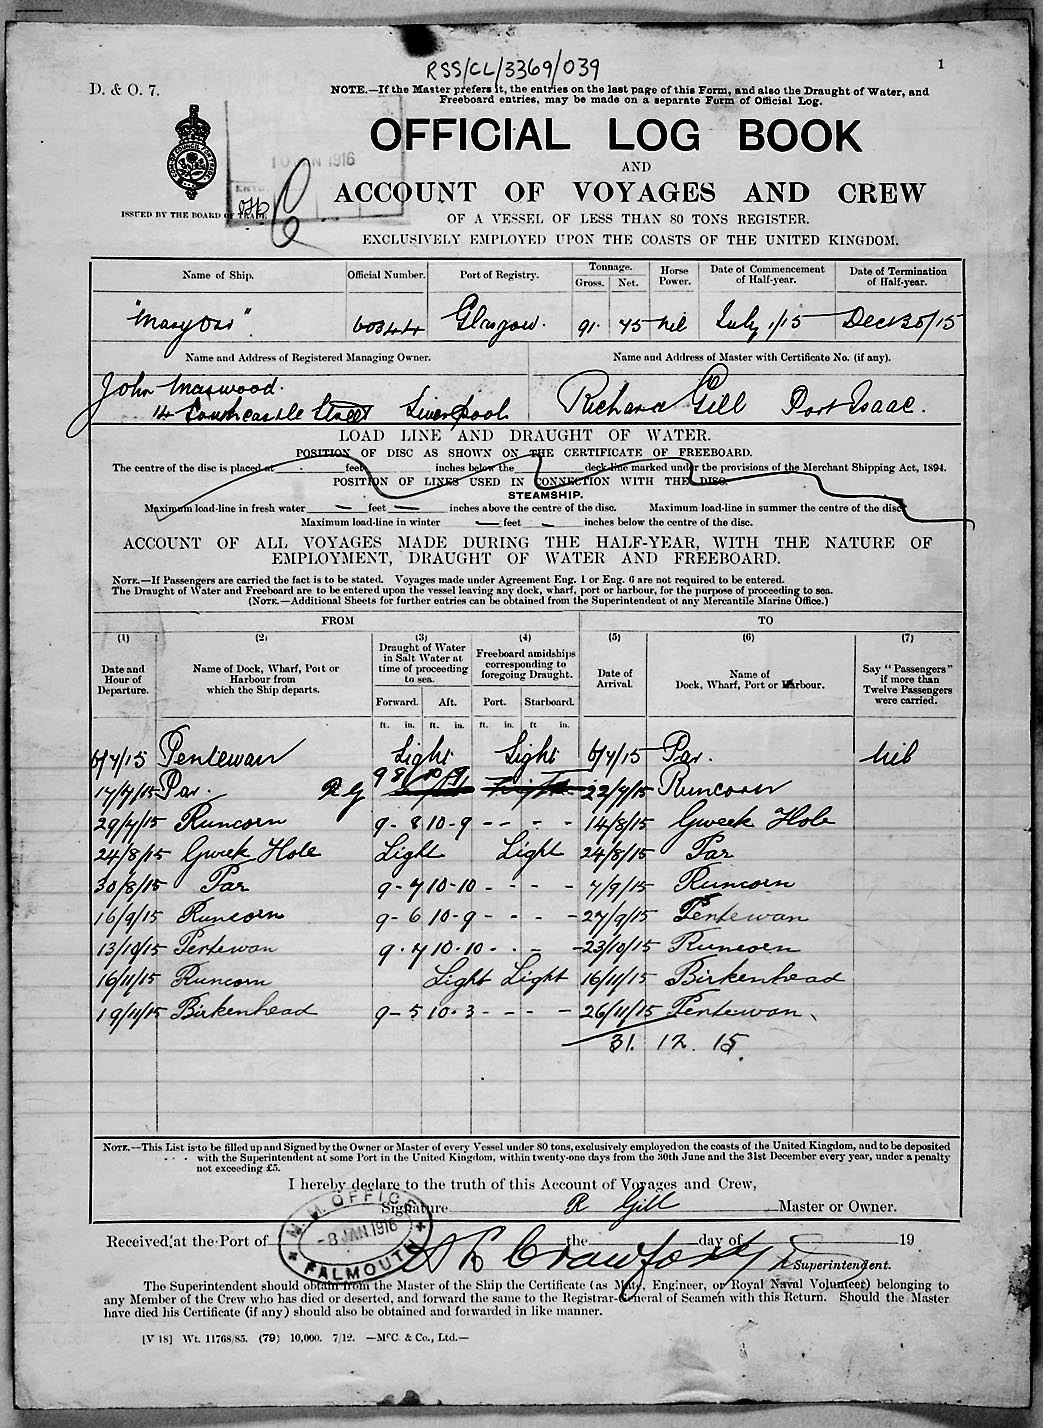 RSS/CL/3369/039
1
D. & O. 7.
NOTE.—If the Master prefers it, the entries on the last page of this Form, and also the Draught of Water, and
Freeboard entries, may be made on a separate Form of Official Log.
OFFICIAL LOG BOOK
AND
ACCOUNT OF VOYAGES AND CREW
OF A VESSEL OF LESS THAN 80 TONS REGISTER.
EXCLUSIVELY EMPLOYED UPON THE COASTS OF THE UNITED KINGDOM.
10 JAN 1916
ISSUED BY THE BOARD OF TRADE
Name of Ship. Official Number. Port of Registry. Tonnage. Gross. Net. Horse Power. Date of Commencement of Half-year. Date of Termination of Half-year.
"Mary Orr". 60344 Glasgow. 91. 75 nil July 1/15 Dec 30/15
Name and Address of Registered Managing Owner. Name and Address of Master with Certificate No. (if any).
John Maswood. Richard Gill Port Isaac.
14 Southcastle Street Liverpool
LOAD LINE AND DRAUGHT OF WATER.
POSITION OF DISC AS SHOWN ON THE CERTIFICATE OF FREEBOARD.
The centre of the disc is placed at feet inches below the deck-line marked under the provisions of the Merchant Shipping Act, 1894.
POSITION OF LINES USED IN CONNECTION WITH THE DISC.
STEAMSHIP.
Maximum load-line in fresh water — feet — inches above the centre of the disc. Maximum load-line in summer the centre of the disc.
Maximum load-line in winter — feet — inches below the centre of the disc.
ACCOUNT OF ALL VOYAGES MADE DURING THE HALF-YEAR, WITH THE NATURE OF
EMPLOYMENT, DRAUGHT OF WATER AND FREEBOARD.
NOTE.—If Passengers are carried the fact is to be stated. Voyages made under Agreement Eng. 1 or Eng. 6 are not required to be entered.
The Draught of Water and Freeboard are to be entered upon the vessel leaving any dock, wharf, port or harbour, for the purpose of proceeding to sea.
(NOTE.—Additional Sheets for further entries can be obtained from the Superintendent of any Mercantile Marine Office.)
FROM TO
(1) (2) (3) (4) (5) (6) (7)
Date and Hour of Departure. Name of Dock, Wharf, Port or Harbour from which the Ship departs. Draught of Water in Salt Water at time of proceeding to sea. Freeboard amidships corresponding to foregoing Draught. Date of Arrival. Name of Dock, Wharf, Port or Harbour. Say "Passengers" if more than Twelve Passengers were carried.
Forward. Aft. Port. Starboard.
ft. in. ft. in. ft. in. ft in.
6/7/15 Pentewan Light Light 6/7/15 Par. nil
17/7/15 Par. R G 9 8 10 9 22/7/15 Runcorn
29/7/15 Runcorn 9-8 10-9 - - - - 14/8/15 Gweek Hole
24/8/15 Gweek Hole Light Light 24/8/15 Par
30/8/15 Par 9-7 10-10 - - - - 7/9/15 Runcorn
16/9/15 Runcorn 9-6 10-9 - - - - 27/9/15 Pentewan
13/10/15 Pentewan 9.7 10.10 - - - 23/10/15 Runcorn
16/11/15 Runcorn Light Light 16/11/15 Birkenhead
19/11/15 Birkenhead 9-5 10.3 - - - - 26/11/15 Pentewan
31. 12. 15.
NOTE.—This List is to be filled up and Signed by the Owner or Master of every Vessel under 80 tons, exclusively employed on the coasts of the United Kingdom, and to be deposited
with the Superintendent at some Port in the United Kingdom, within twenty-one days from the 30th June and the 31st December every year, under a penalty
not exceeding £5.
I hereby declare to the truth of this Account of Voyages and Crew,
Signature R Gill Master or Owner.
M. M. OFFICE
-8 JAN 1916
FALMOUTH
Received at the Port of the day of 19
Crawford Superintendent.
The Superintendent should obtain from the Master of the Ship the Certificate (as Mate, Engineer, or Royal Naval Volunteer) belonging to
any Member of the Crew who has died or deserted, and forward the same to the Registrar-General of Seamen with this Return. Should the Master
have died his Certificate (if any) should also be obtained and forwarded in like manner.
[V 18] Wt. 11768/85. (79) 10,000. 7/12. —McC. & Co., Ltd.—